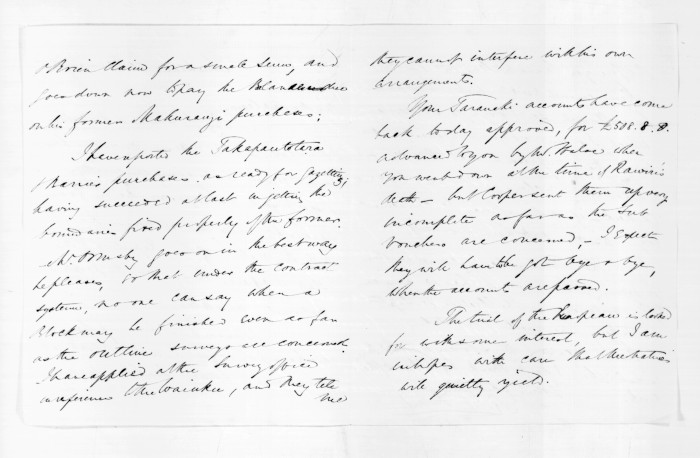 O'Brien claim for a small sum, and
goes down now to pay the
on his former Mahurangi purchases;
I have reported the Takapautotera
purchases as ready for gazetting,
having succeeded at last in getting the
boundaries fixed properly of the former.
Mr. Ormsby goes on in the best way
he pleases, so that under the contract
system, no one can say when a
Block may be finished even so far
as the outline surveys are concerned.
I have applied at the Survey office
in reference to the Waiuku, and they tell
me
they cannot interfere with his own
arrangements.
Your Taranaki accounts have come
back today approved, for £508.8.8.
advanced to you by Mr. Halse when
you went down at the time of Rawiri's
death - but Cooper sent them up very
incomplete as far as the Sub
Vouchers are concerned, - I expect
they will have to be got bye & bye,
when the accounts are passed.
The trial of the is looked
for with some interest, but I am
in hopes with care that the natives
will quietly yield.